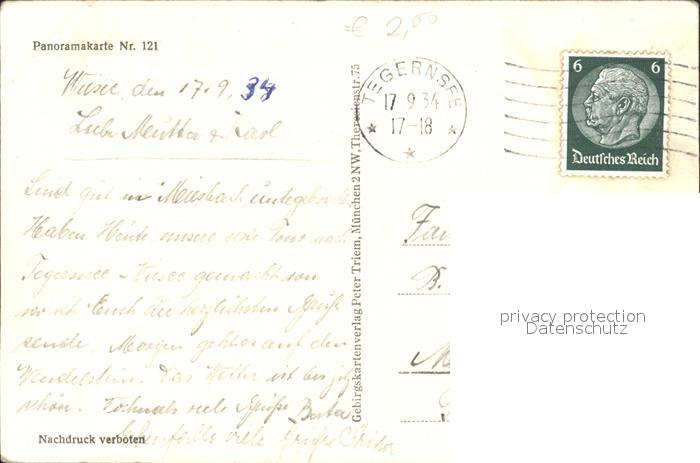 Panoramakarte Nr. 121
€ 2,00
Wiesee, den 17.9.34
Liebe Mutter & Karl
Sind gut in Miesbach untergebracht
Haben Heute unsere erste Tour nach
Tegernsee - Wiesee gemacht von
wo ich Euch die herzlichsten Grüße
sende. Morgen geht es auf den
Wendelstein. Das Wetter ist bis jetzt
schön. Nochmals viele Grüße Berta
Ebenfalls viele Grüße
Nachdruck verboten
Gebirgskartenverlag Peter Triem, München 2 NW, Theresienstr. 75
TEGERNSEE
17 9 34
17-18
6 6
Deutsches Reich
Fam
B.
M
privacy protection
Datenschutz